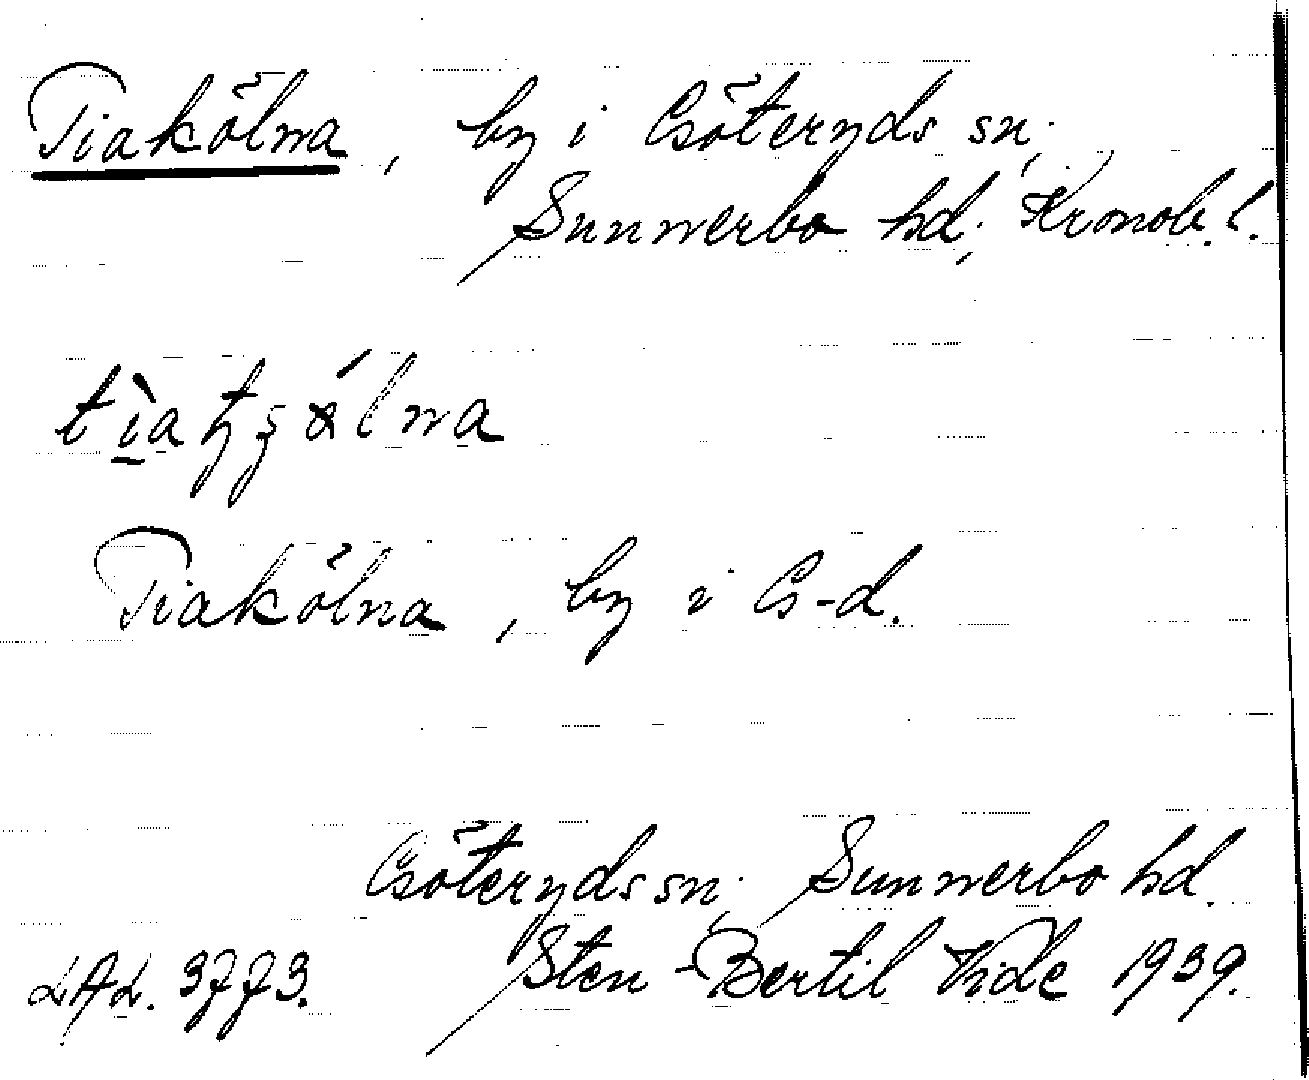 Tiakölna, by i Csöteryds sn;
Sunnerbo hd; Kronob. l.
Tiakölna, by i Cs-d.
Csöteryds sn; Sunnerbo hd.
LAL. 3773. Sten-Bertil Vide 1939.